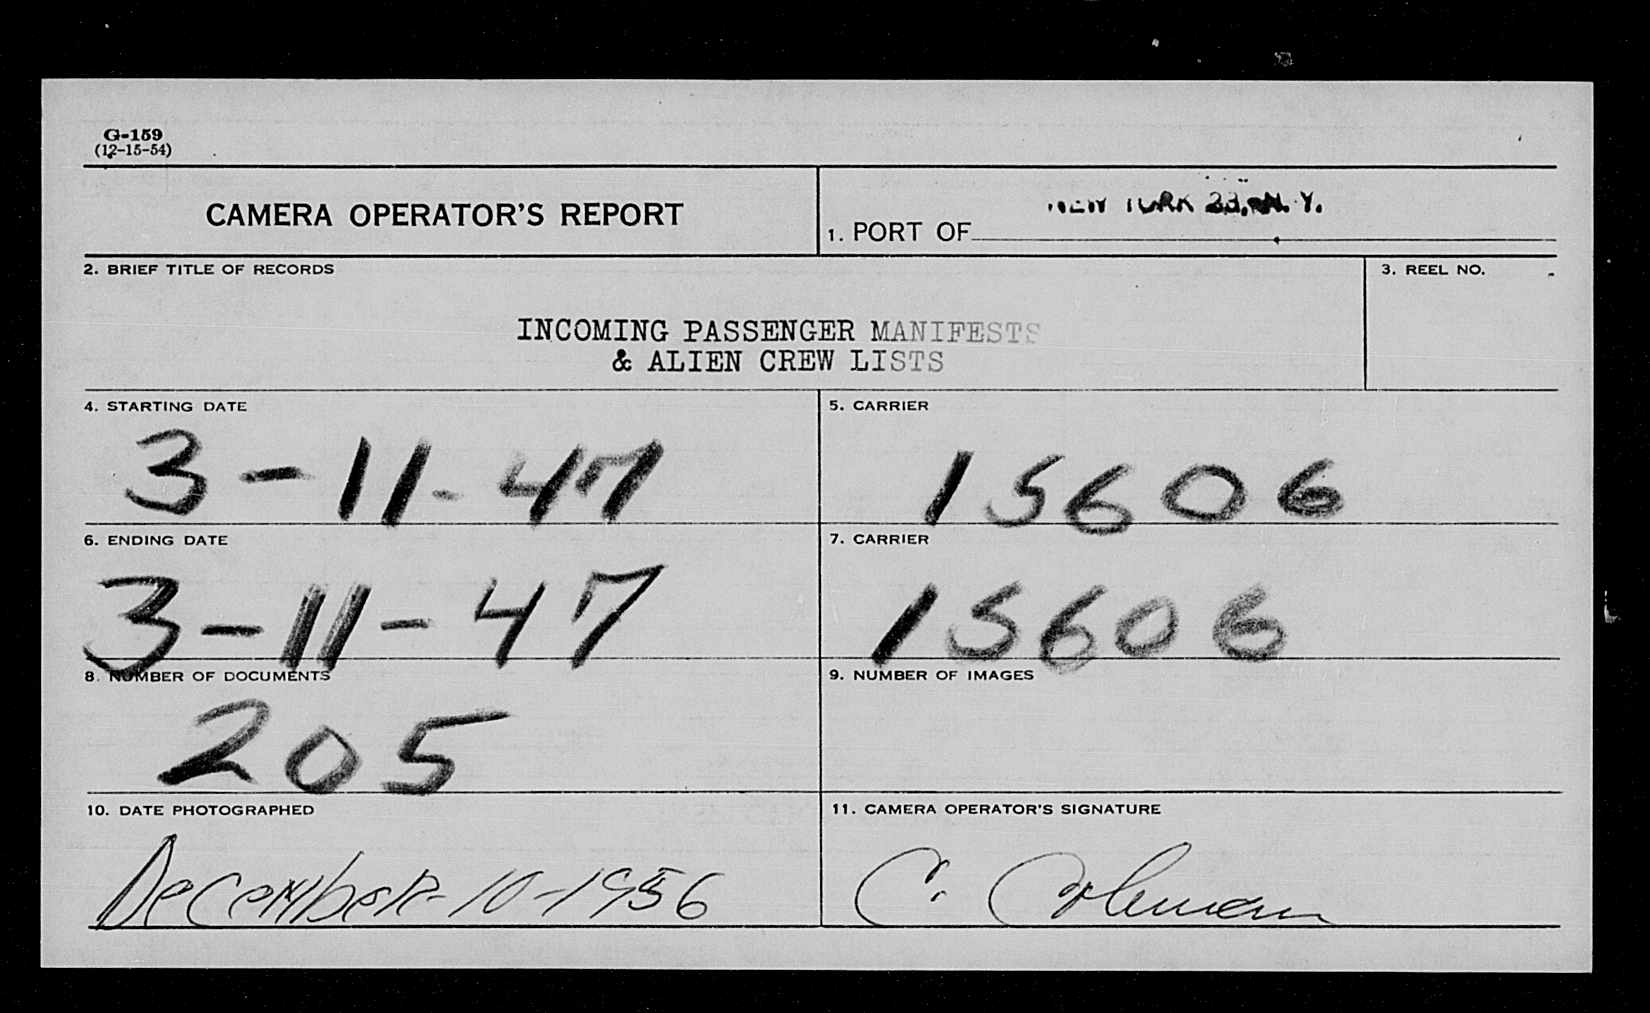 G-159
(12-15-54)
CAMERA OPERATOR'S REPORT
1. PORT OF NEW YORK 23, N. Y.
2. BRIEF TITLE OF RECORDS
3. REEL NO.
INCOMING PASSENGER MANIFESTS
& ALIEN CREW LISTS
4. STARTING DATE
5. CARRIER
3-11-47
15606
6. ENDING DATE
7. CARRIER
3-11-47
15606
8. NUMBER OF DOCUMENTS
9. NUMBER OF IMAGES
205
10. DATE PHOTOGRAPHED
11. CAMERA OPERATOR'S SIGNATURE
December-10-1956
C. Coleman